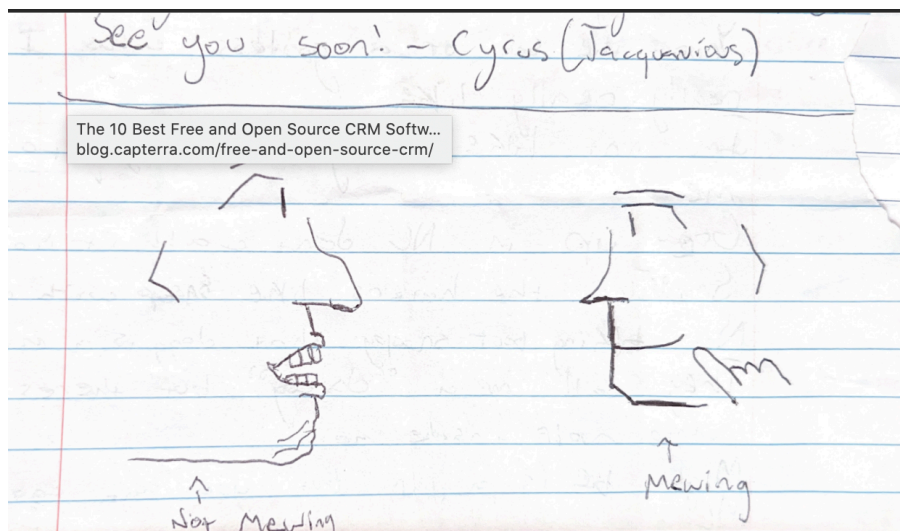 See you soon! ~ Cyrus (Jacquavious)
The 10 Best Free and Open Source CRM Softw...
blog.capterra.com/free-and-open-source-crm/
Mewing
Not Mewing